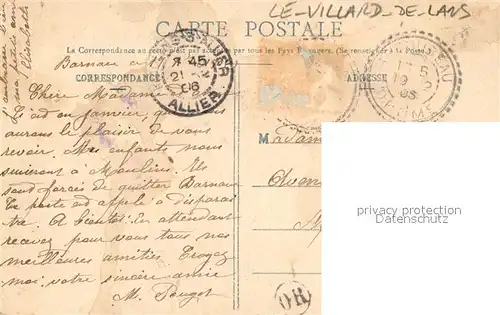 LE-VILLARD-DE-LANS
CARTE POSTALE
La Correspondance au recto n'est pas acceptée par tous les Pays Étrangers. (Se renseigner à la Poste)
CORRESPONDANCE
ADRESSE
Barnaux 19
7 45
21
08
ALLIER
15
19
08
DRÔME
Chère Madame
C'est en janvier, que nous
aurons le plaisir de vous
revoir. Mes enfants nous
suivront à Moulins. Ils
sont forcés de quitter Barnaux
le poste est appelé à disparaî
tre. A bientôt. En attendant
recevez pour vous tous nos
meilleures amitiés. Croyez
moi votre sincère amie
M. Pougot
Madam
privacy protection
watermarks
OR